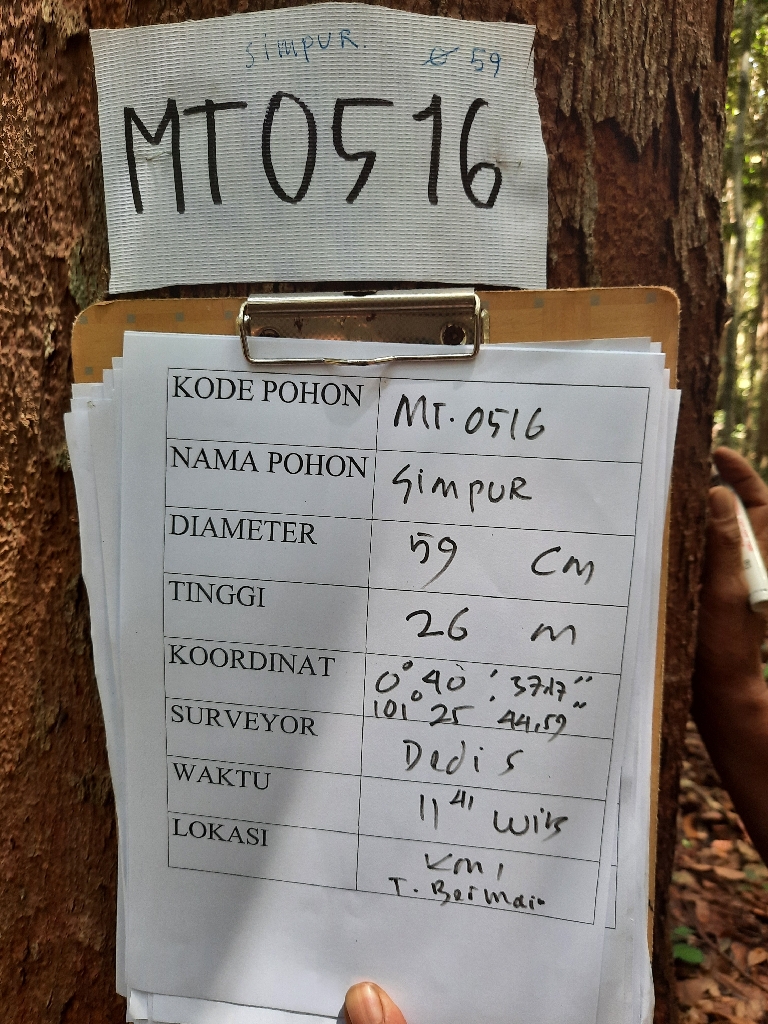 Simpur. Ø 59
MT0516
KODE POHON MT.0516
NAMA POHON Simpur
DIAMETER 59 cm
TINGGI 26 m
KOORDINAT 0° 40' 37.17"
101° 25' 44.59"
SURVEYOR Dedi S
WAKTU 11 41 WIB
LOKASI Km 1
T. Bermain